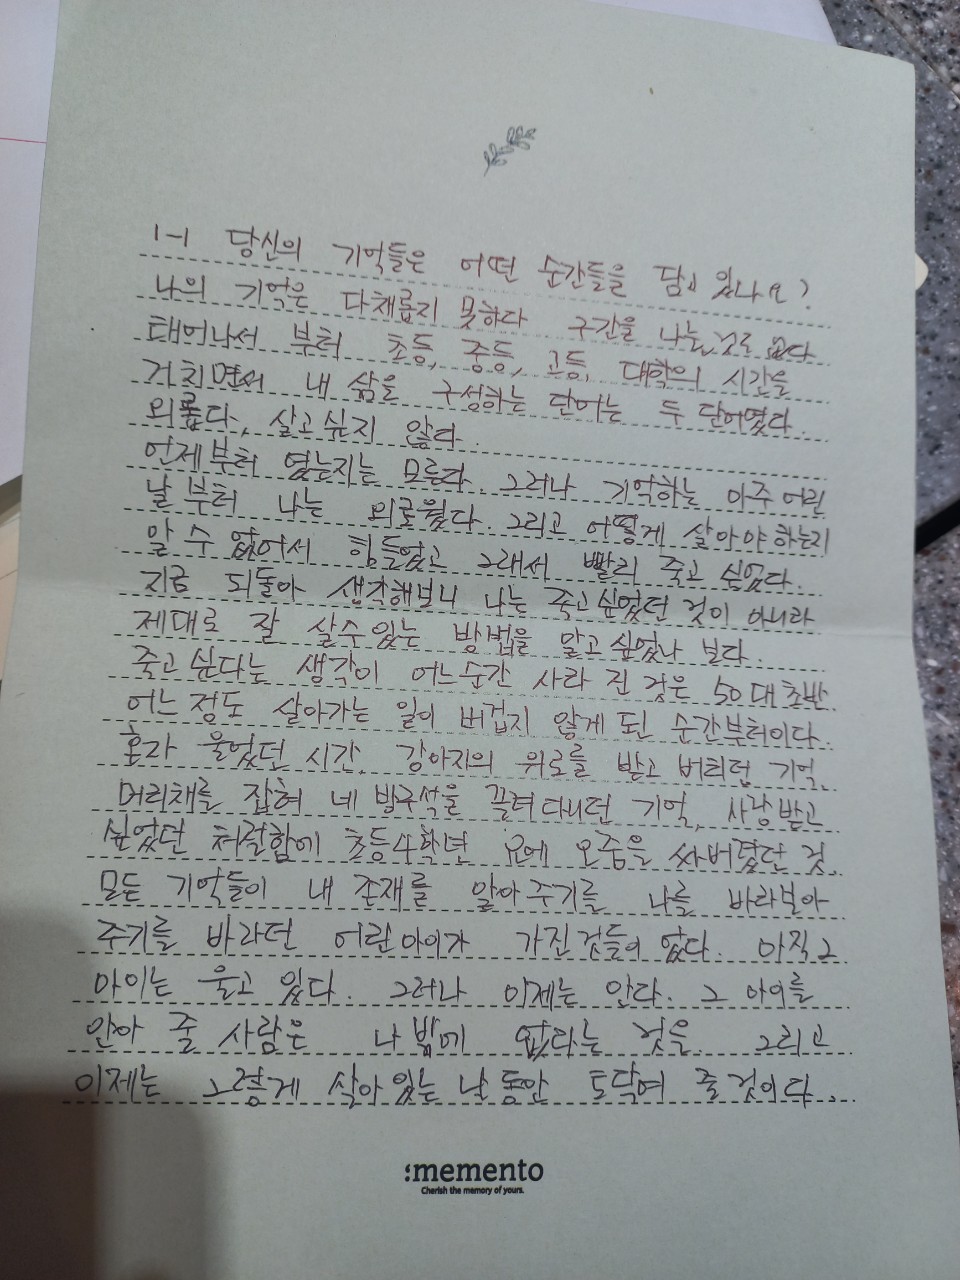 1-1 당신의 기억들은 어떤 순간들을 담고 있나요?
나의 기억은 다채롭지 못하다 구간을 나눌 것도 없다
태어나서 부터 초등, 중등, 고등, 대학의 시간을
거치면서 내 삶을 구성하는 단어는 두 단어였다.
외롭다, 살고 싶지 않다.
언제부터 였는지는 모른다. 그러나 기억하는 아주 어린
날부터 나는 외로웠다. 그리고 어떻게 살아야 하는지
알 수 없어서 힘들었고 그래서 빨리 죽고 싶었다.
지금 되돌아 생각해보니 나는 죽고 싶었던 것이 아니라
제대로 잘 살수 있는 방법을 알고 싶었나 보다.
죽고 싶다는 생각이 어느순간 사라 진 것은 50대 초반.
어느 정도 살아가는 일이 버겁지 않게 된 순간부터이다.
혼자 울었던 시간. 강아지의 위로를 받고 버티던 기억,
머리채를 잡혀 네 방구석을 끌려다니던 기억, 사랑받고
싶었던 처절함에 초등4학년 요에 오줌을 싸버렸던 것.
모든 기억들이 내 존재를 알아 주기를 나를 바라보아
주기를 바라던 어린아이가 가진 것들이 었다. 아직 그
아이는 울고 있다. 그러나 이제는 안다. 그 아이를
안아 줄 사람은 나 밖에 없다는 것을. 그리고
이제는 그렇게 살아있는 날 동안 토닥여 줄 것이다.
:memento
Cherish the memory of yours.